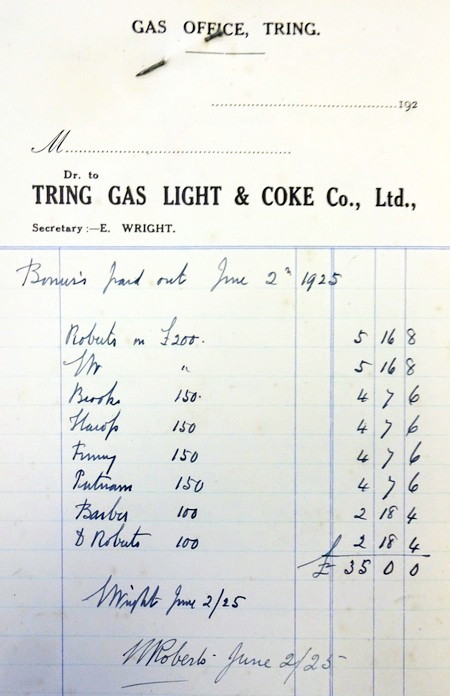 GAS OFFICE, TRING.
192
M
Dr. to
TRING GAS LIGHT & COKE Co., Ltd.,
Secretary:—E. WRIGHT.
Bonus's paid out June 2nd 1925
Roberts on £200. 5 16 8
EW " 5 16 8
Brooks 150. 4 7 6
Harrop 150 4 7 6
Funny 150 4 7 6
Putnam 150 4 7 6
Barber 100 2 18 4
D Roberts 100 2 18 4
£ 35 0 0
EWright June 2/25
WRoberts June 2/25